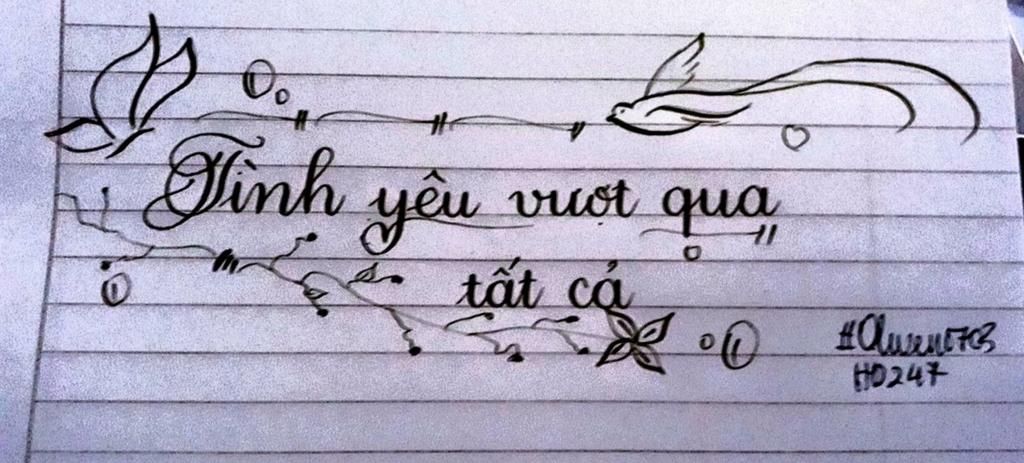 Tình yêu vượt qua
tất cả
HD247